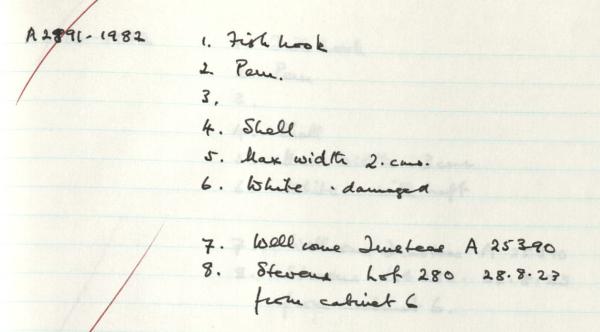 A2891-1982 1. Fish hook
2 Peru.
3.
4. Shell
5. Max width 2.cms.
6. White . damaged
7. Wellcome Trustees A 25390
8. Stevens Lot 280 28.8.23
from cabinet 6